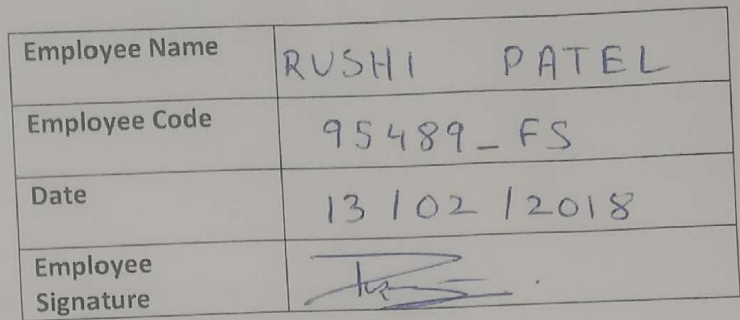 Employee Name RUSHI PATEL
Employee Code 95489_FS
Date 13/02/2018
Employee
Signature